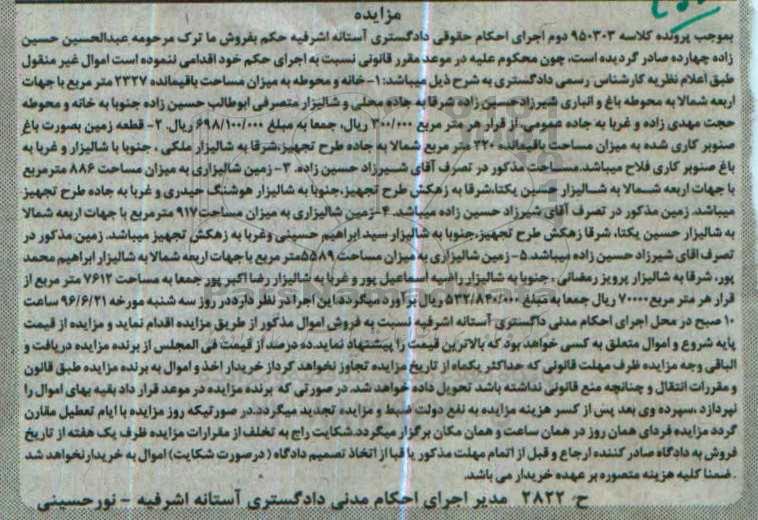 مزایده
بموجب پرونده کلاسه ۹۵۰۳۰۳ دوم اجرای احکام حقوقی دادگستری آستانه اشرفیه حکم بفروش ما ترک مرحومه عبدالحسین حسین
زاده چهارده صادر گردیده است، چون محکوم علیه در موعد مقرر قانونی نسبت به اجرای حکم خود اقدامی ننموده است اموال غیر منقول
طبق اعلام نظریه کارشناس رسمی دادگستری به شرح ذیل میباشد: ۱- خانه و محوطه به میزان مساحت باقیمانده ۲۳۲۷ متر مربع با جهات
اربعه شمالا به محوطه باغ و انباری شیرزادحسین زاده شرقا به جاده محلی و شالیزار متصرفی ابوطالب حسین زاده جنوبا به خانه و محوطه
حجت مهدی زاده و غربا به جاده عمومی.از قرار هر متر مربع ۳۰۰/۰۰۰ ریال، جمعا به مبلغ ۶۹۸/۱۰۰/۰۰۰ ریال. ۲- قطعه زمین بصورت باغ
صنوبر کاری شده به میزان مساحت باقیمانده ۲۲۰ متر مربع شمالا به جاده طرح تجهیز،شرقا به شالیزار ملکی ، جنوبا با شالیزار و غربا به
باغ صنوبر کاری فلاح میباشد.مساحت مذکور در تصرف آقای شیرزاد حسین زاده. ۳- زمین شالیزاری به میزان مساحت ۸۸۶ مترمربع
با جهات اربعه شمالا به شالیزار حسین یکتا،شرقا به زهکش طرح تجهیز،جنوبا به شالیزار هوشنگ حیدری و غربا به جاده طرح تجهیز
میباشد. زمین مذکور در تصرف آقای شیرزاد حسین زاده میباشد. ۴-زمین شالیزاری به میزان مساحت۹۱۷ مترمربع با جهات اربعه شمالا
به شالیزار حسین یکتا، شرقا زهکش طرح تجهیز،جنوبا به شالیزار سید ابراهیم حسینی وغربا به زهکش تجهیز میباشد. زمین مذکور در
تصرف اقای شیرزاد حسین زاده میباشد.۵- زمین شالیزاری به میزان مساحت ۵۵۸۹متر مربع با جهات اربعه شمالا به شالیزار ابراهیم محمد
پور، شرقا به شالیزار پرویز رمضانی ، جنوبا به شالیزار راضیه اسماعیل پور و غربا به شالیزار رضا اکبر پور جمعا به مساحت ۷۶۱۲ متر مربع از
قرار هر متر مربع ۷۰۰۰۰ ریال جمعا به مبلغ ۵۳۲/۸۴۰/۰۰۰ ریال برآورد میگردد.این اجرا در نظر دارددر روز سه شنبه مورخه ۹۶/۶/۲۱ ساعت
۱۰ صبح در محل اجرای احکام مدنی دادگستری آستانه اشرفیه نسبت به فروش اموال مذکور از طریق مزایده اقدام نماید و مزایده از قیمت
پایه شروع و اموال متعلق به کسی خواهد بود که بالاترین قیمت را پیشنهاد نماید.ده درصد از قیمت فی المجلس از برنده مزایده دریافت و
الباقی وجه مزایده ظرف مهلت قانونی که حداکثر یکماه از تاریخ مزایده تجاوز نخواهد کرد،از خریدار اخذ و اموال به برنده مزایده طبق قانون
و مقررات انتقال و چنانچه منع قانونی نداشته باشد تحویل داده خواهد شد. در صورتی که برنده مزایده در موعد قرار داد بقیه بهای اموال را
نپردازد ،سپرده وی بعد پس از کسر هزینه مزایده به نفع دولت ضبط و مزایده تجدید میگردد.در صورتیکه روز مزایده با ایام تعطیل مقارن
گردد مزایده فردای همان روز در همان ساعت و همان مکان برگزار میگردد.شکایت راج به تخلف از مقرارات مزایده ظرف یک هفته از تاریخ
فروش به دادگاه صادر کننده ارجاع و قبل از اتمام مهلت مذکور یا قبا از اتخاذ تصمیم دادگاه ( درصورت شکایت) اموال به خریدارنخواهد شد
. ضمنا کلیه هزینه متصوره بر عهده خریدار می باشد.
ح: ۲۸۲۲ مدیر اجرای احکام مدنی دادگستری آستانه اشرفیه - نورحسینی